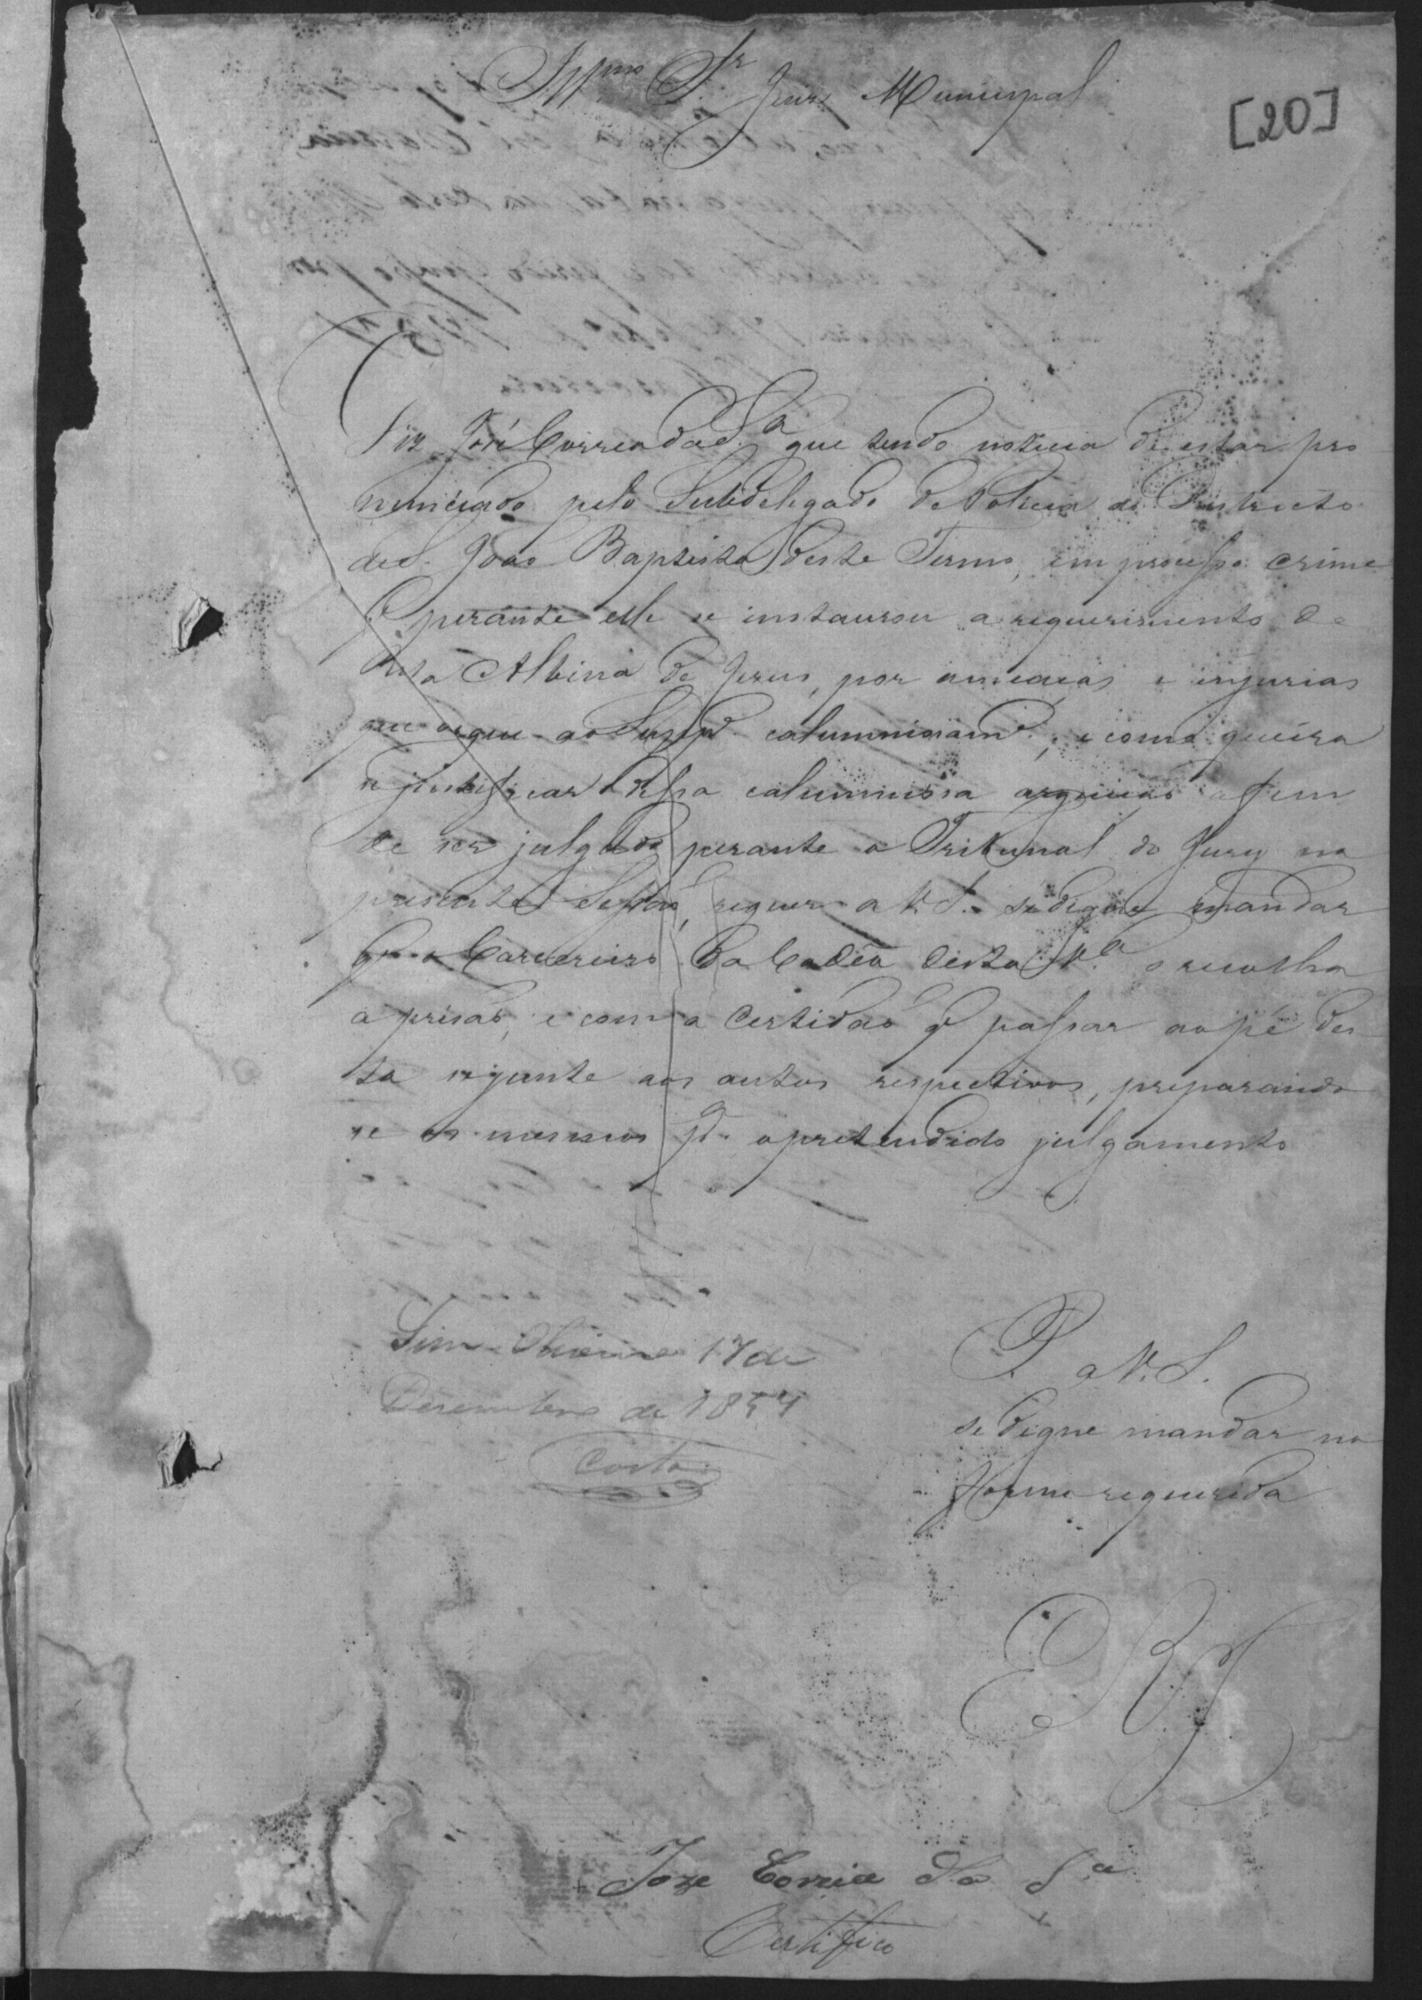 Illmo Sr Juiz Municipal
[20]
Diz José Correa da Sa que tendo noticia de estar pro
nunciado pelo Subdelegado de Policia do Districto
de S. João Baptista deste Termo, em processo crime
q perante elle se instaurou a requerimento de
Albina de Jesus, por ameaças e injurias
que argue ao Suppe calumniosame, e como queira
se justificar dessa calumniosa arguição afim
de ser julgado perante o Tribunal do Jury na
presente Sessão, requer a V. S. se digne mandar
q o Carcereiro da Cadêa desta Va o recolha
a prisão, e com a Certidão q passar ao pé des
ta se junte aos autos respectivos, preparando
se os mesmos pa o pretendido julgamento
Sim Oliveira 17 de
Dezembro de 1854
Costa
P. a V. S.
se digne mandar na
forma requerida
E R J
Joze Correia da Sa
Certifico